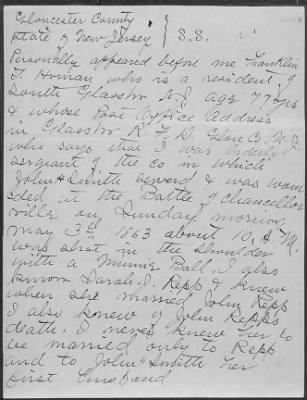 Gloucester County
State of New Jersey } S.S.
Personally appeared before me Franklin
F. Homan who is a resident of
South Glassbro N.J. age 77 yrs
& whose Post Office Address
in Glassbro R.F.D. Glou Co. N.J.
who says that I was Orderly
Sergeant of the co in which
John H Smith served & was woun
ded at the Battle of Chancellor
ville on Sunday morning
May 3rd 1863 about 10. A.M.
was shot in the shoulder
with a Minnie Ball. I also
know Sarah J. Repp & knew
when she married John Repp
I also knew of John Repps
death. I never knew her to
be married only to Repp
and to John H Smith her
first husband